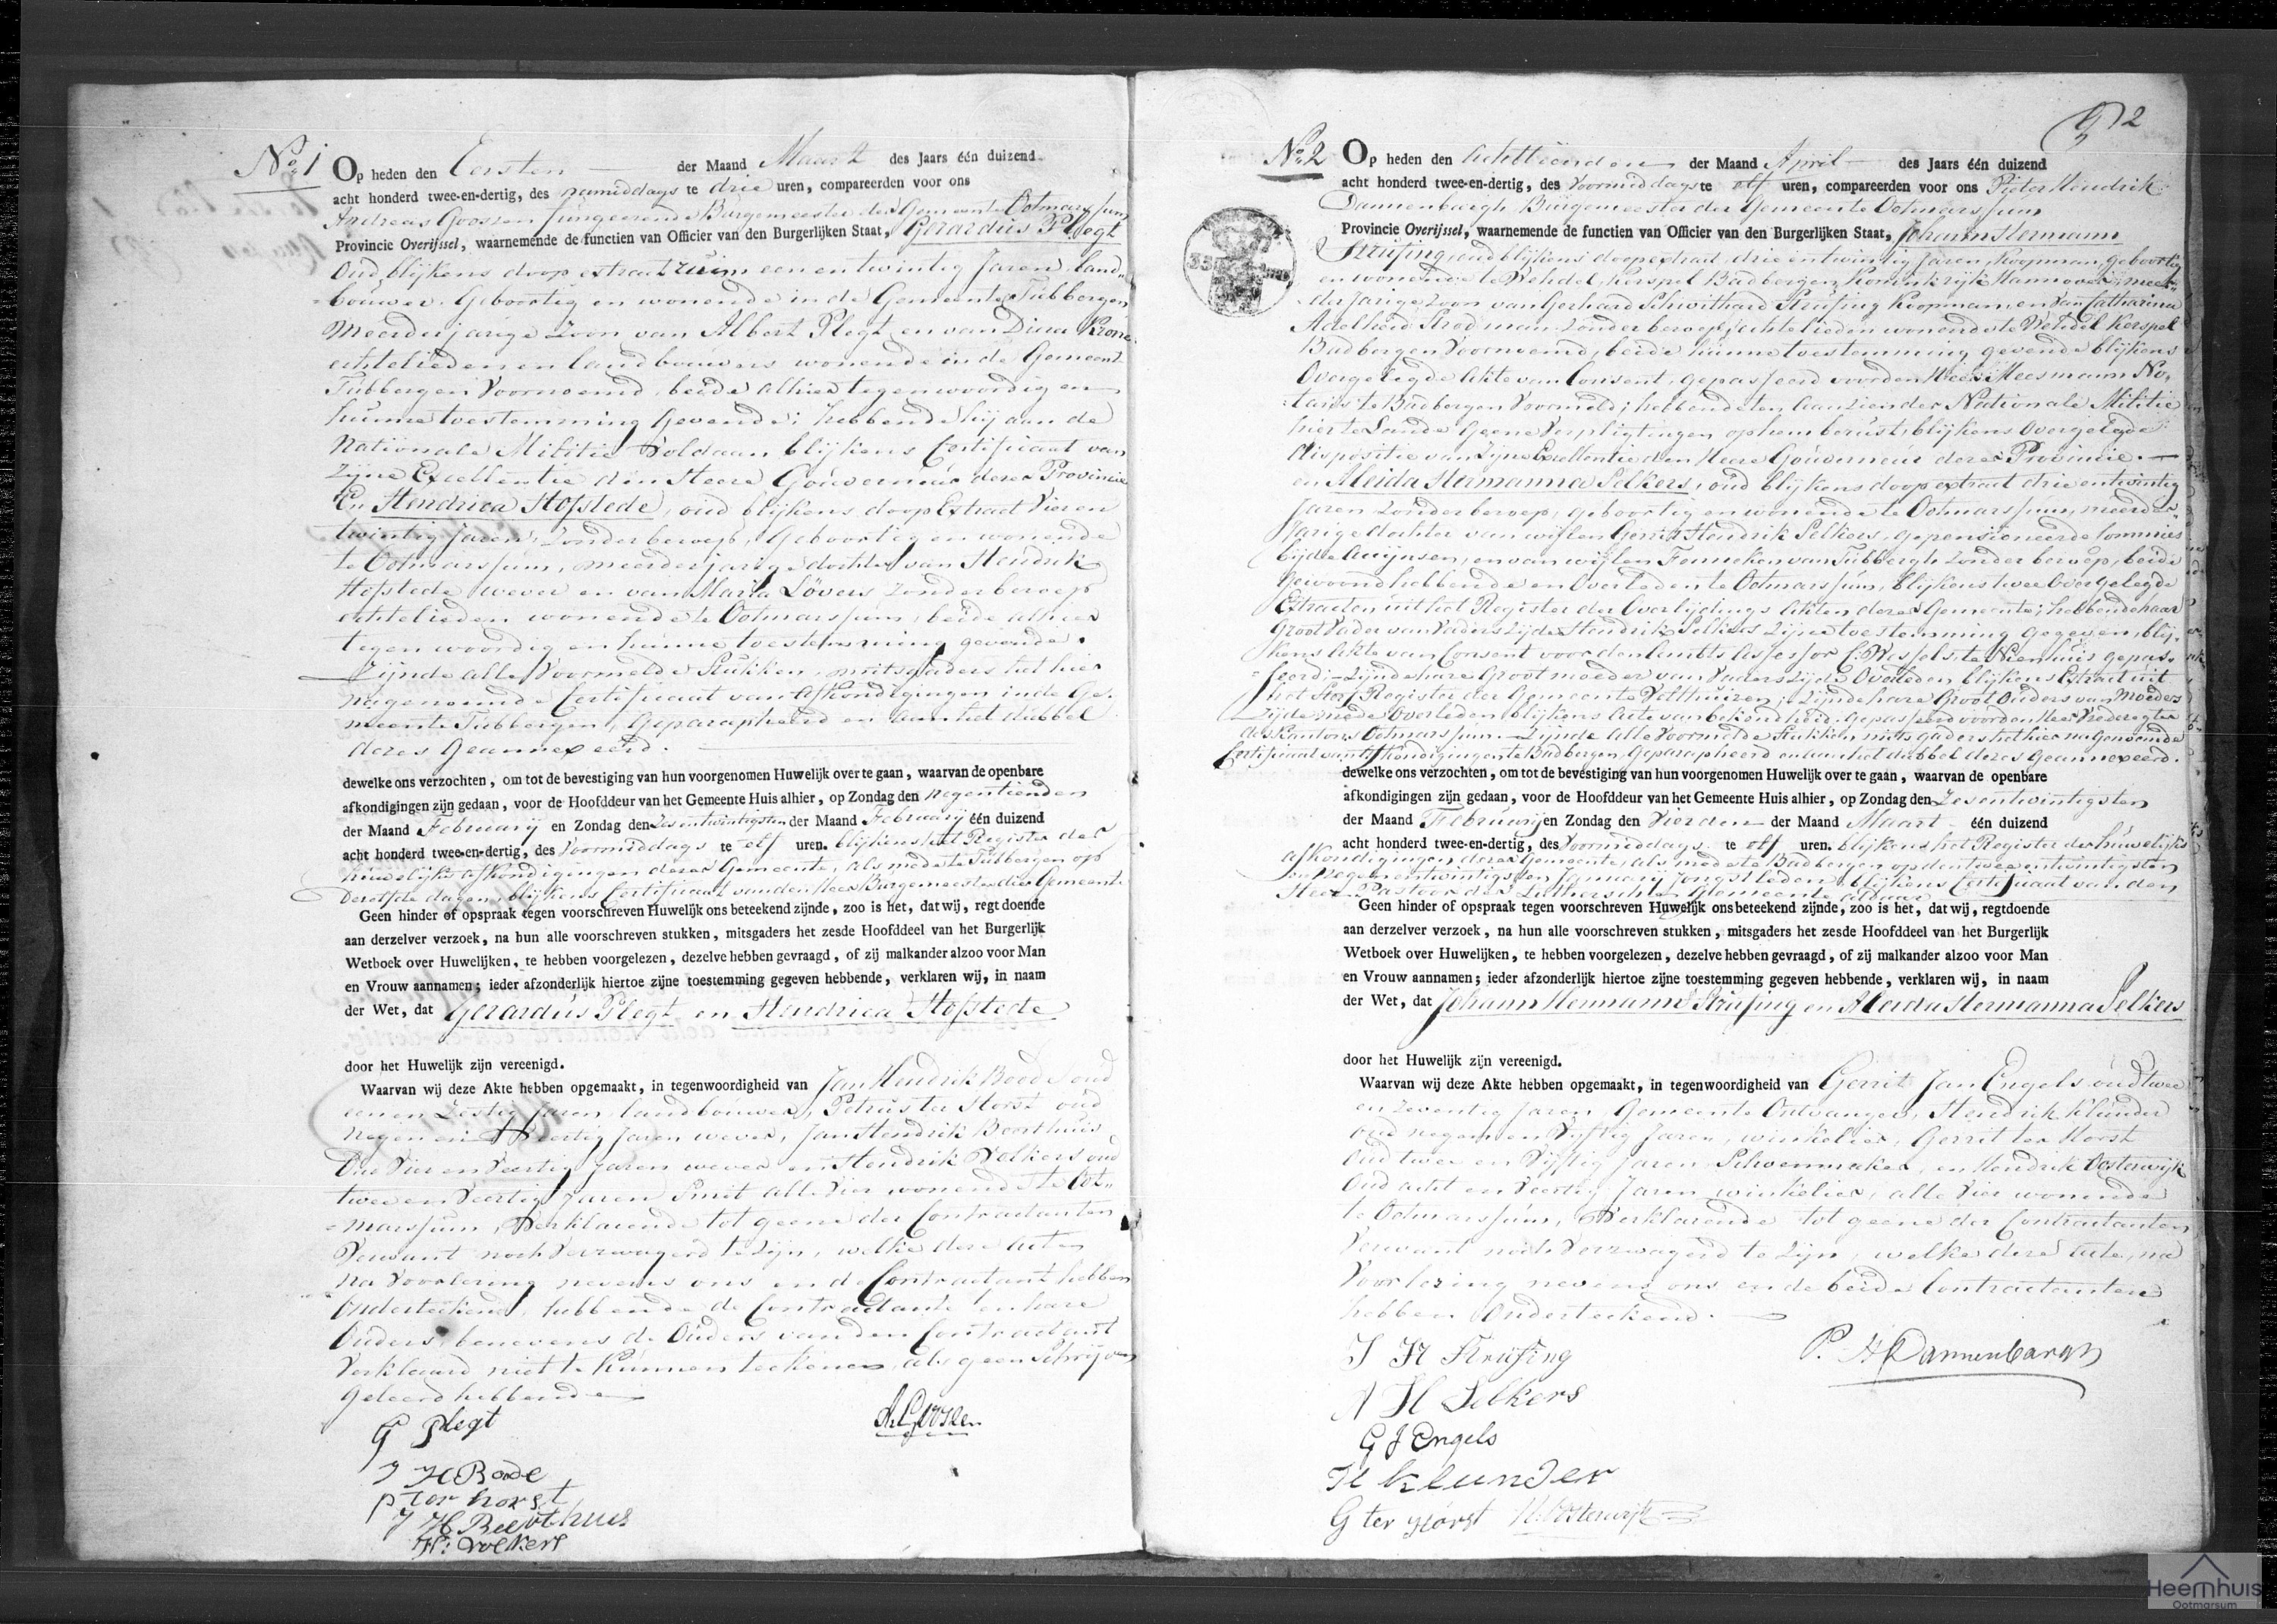 No. 1 Op heden den Eersten der Maand Maart des Jaars één duizend
acht honderd twee-en-dertig, des namiddags te drie uren, compareerden voor ons
Andreas Goossen fungeerende Burgemeester der Gemeente Ootmarssum
Provincie Overijssel, waarnemende de functien van Officier van den Burgerlijken Staat, Gerardus Plegt
Oud blijkens doop extract ruim een en twintig Jaren, land-
bouwer, Geboortig en wonende in de Gemeente Tubbergen
Meerderjarige Zoon van Albert Plegt en van Diena Krone
echtelieden en landbouwers wonende in de Gemeent
Tubbergen voornoemd, beide alhier tegenwoordig en
hunne toestemming gevende; hebbende hij aan de
Nationale Militie voldaan blijkens Certificaat van
Zijne Excellentie den Heere Gouverneur dezer Provincie
En Hendrica Hofstede, oud blijkens doop Extract Vier en
twintig Jaren, Zonder beroep, Geboortig en wonende
te Ootmarssum, meerderjarige dochter van Hendrik
Hofstede wever en van Maria Lövers zonder beroep
echtelieden wonende te Ootmarssum, beide alhier
tegenwoordig en hunne toestemming gevende.
Zijnde alle voormelde Stukken, mitsgaders het hier
nagenoemde Certificaat van afkondigingen in de Ge-
meente Tubbergen, Geparapheerd en aan het dubbel
dezes Geannexeerd.
dewelke ons verzochten, om tot de bevestiging van hun voorgenomen Huwelijk over te gaan, waarvan de openbare
afkondigingen zijn gedaan, voor de Hoofddeur van het Gemeente Huis alhier, op Zondag den negentienden
der Maand Februarij en Zondag den Zesentwintigsten der Maand Februarij één duizend
acht honderd twee-en-dertig, des Voormiddags te elf uren. blijkens het Register der
huwelijks afkondigingen dezer Gemeente, als mede te Tubbergen op
Dezelfde dagen, blijkens Certificaat van den Heer Burgemeester dier Gemeente
Geen hinder of opspraak tegen voorschreven Huwelijk ons beteekend zijnde, zoo is het, dat wij, regt doende
aan derzelver verzoek, na hun alle voorschreven stukken, mitsgaders het zesde Hoofddeel van het Burgerlijk
Wetboek over Huwelijken, te hebben voorgelezen, dezelve hebben gevraagd, of zij malkander alzoo voor Man
en Vrouw aannamen; ieder afzonderlijk hiertoe zijne toestemming gegeven hebbende, verklaren wij, in naam
der Wet, dat Gerardus Plegt en Hendrica Hofstede
door het Huwelijk zijn vereenigd.
Waarvan wij deze Akte hebben opgemaakt, in tegenwoordigheid van Jan Hendrik Boode oud
een en Zestig Jaren, landbouwer, Petrus ter Horst oud
negen en Veertig Jaren wever, Jan Hendrik Boothuis
Oud Vier en Veertig Jaren wever en Hendrik Volkers oud
twee en Veertig Jaren Smit alle Vier wonende te Oot-
marssum, Verklarende tot geene der Contractanten
Verwant noch Verzwagerd te zijn, welke deze acte
na Voorlezing nevens ons en de Contractant hebben
Onderteekend, hebbende de Contractante en hare
Ouders, benevens de Ouders van den Contractant
Verklaard niet te kunnen teekenen, als geen Schrijven
geleerd hebbende
G Plegt
A. Goossen
J H Bode
P ter horst
J H Boothuis
H: Volkers
2
No. 2 Op heden den achttienden der Maand April des Jaars één duizend
acht honderd twee-en-dertig, des Voormiddags te elf uren, compareerden voor ons Pieter Hendrik
Dannenbargh Burgemeester der Gemeente Ootmarssum
Provincie Overijssel, waarnemende de functien van Officier van den Burgerlijken Staat, Johann Hermann
Krüsing, oud blijkens doopextract, drie en twintig Jaren, Koopman, geboortig
en wonende te Wehdel, Kerspel Badbergen, Koninkrijk Hannover, meer-
derjarige zoon van Gerhard Schwithard Krüsing Koopman, en van Catharina
Adelheid Strodman zonder beroep, echtelieden wonende te Wehdel Kerspel
Badbergen Voornoemd, beide hunne toestemming gevende blijkens
Overgelegde Akte van Consent, gepasseerd voor den Heer Meesmann No-
taris te Badbergen Voormeld; hebbende ten aanzien der Nationale Militie
hier te Lande geene Verpligtingen op hem berust, blijkens Overgelegde
dispositie van Zijne Excellentie den Heere Gouverneur dezer Provincie.
en Aleida Hermanna Selkers, oud blijkens doopextract drie en twintig
Jaren zonder beroep, geboortig en wonende te Ootmarssum, meerder-
jarige dochter van wijlen Gerrit Hendrik Selkers, gepensioneerde Commies
bij de Accijnsen, en van wijlen Fenneken van Tubbergh zonder beroep, beide
gewoond hebbende en Overleden te Ootmarssum, blijkens twee Overgelegde
Extracten uit het Register der Overlijdings Akten dezer Gemeente; hebbende haar
Groot Vader van Vaders zijde Hendrik Selkers zijne toestemming gegeven, blij-
kens Akte van Consent voor den Ambts Assessor C. Wessels te Nienhuis gepas-
seerd; Zijnde hare Grootmoeder van Vaders zijde Overleden blijkens Extract uit
het Sterf Register der Gemeente Velthuizen; Zijnde hare Groot Ouders van Moeders
Zijde mede Overleden blijkens Acte van bekendheid, gepasseerd voor den Heer Vrederegter
des Kantons Ootmarssum. Zijnde alle Voormelde Stukken, mitsgaders het hier nagenoemde
Certificaat van Afkondigingen te Badbergen, Geparapheerd en aan het dubbel dezes Geannexeerd.
dewelke ons verzochten, om tot de bevestiging van hun voorgenomen Huwelijk over te gaan, waarvan de openbare
afkondigingen zijn gedaan, voor de Hoofddeur van het Gemeente Huis alhier, op Zondag den Zesentwintigsten
der Maand Februarij en Zondag den Vierden der Maand Maart één duizend
acht honderd twee-en-dertig, des Voormiddags te elf uren. blijkens het Register der huwelijks
afkondigingen dezer Gemeente, als mede te Badbergen op den tweeentwintigsten
en Negenentwintigsten Januarij Jongstleden, blijkens Certificaat van den
Heer Pastoor der Luthersche Gemeente aldaar
Geen hinder of opspraak tegen voorschreven Huwelijk ons beteekend zijnde, zoo is het, dat wij, regtdoende
aan derzelver verzoek, na hun alle voorschreven stukken, mitsgaders het zesde Hoofddeel van het Burgerlijk
Wetboek over Huwelijken, te hebben voorgelezen, dezelve hebben gevraagd, of zij malkander alzoo voor Man
en Vrouw aannamen; ieder afzonderlijk hiertoe zijne toestemming gegeven hebbende, verklaren wij, in naam
der Wet, dat Johann Hermann Krüsing en Aleida Hermanna Selkers
door het Huwelijk zijn vereenigd.
Waarvan wij deze Akte hebben opgemaakt, in tegenwoordigheid van Gerrit Jan Engels oud twee
en Zeventig Jaren, Gemeente Ontvanger, Hendrik Klunder
oud negen en Vijftig Jaren, winkelier, Gerrit ter Horst
Oud twee en Vijftig Jaren Schoenmaker, en Hendrik Oosterwijk
Oud acht en Veertig Jaren winkelier, alle Vier wonende
te Ootmarssum, Verklarende tot geene der Contractanten
Verwant noch Verzwagerd te zijn, welke deze acte, na
Voorlezing nevens ons en de beide Contractanten
hebben Onderteekend.
J H Krüsing
P. H Dannenbargh
A H Selkers
G J Engels
H klunder
G ter Horst H. Oosterwijk
Heemhuis
Ootmarsum